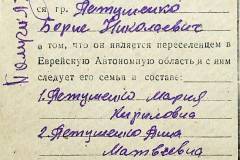 ся гр. Петушенко
Борис Николаевич
в том, что он является переселенцем в
Еврейскую Автономную область и с ним
следует его семья в составе:
1. Петушенко Мария
Кириловна
2. Петушенко Анна
Матвеевна